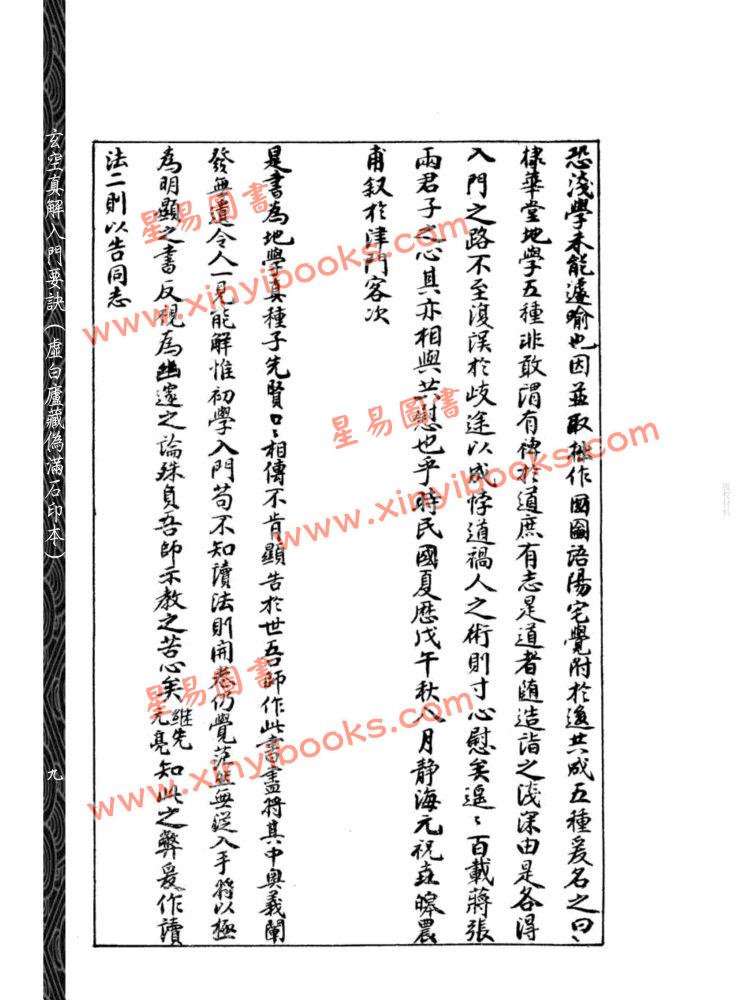 恐淺學未能遽喻也因並取拙作國圖語陽宅覺附於後共成五種爰名之曰
棣華堂地學五種非敢謂有裨於道庶有志是道者随造詣之淺深由是各得
入門之路不至復誤於歧途以成悖道禍人之術則寸心慰矣遥〻百載蔣張
兩君子之心其亦相與共慰也乎時民國夏歷戊午秋八月静海元祝垚皡農
甫叙於津門客次
是書為地學真種子先賢口〻相傳不肯顯告於世吾師作此書盡将其中奥義闡
發無遺令人一見能解惟初學入門苟不知讀法則開卷仍覺茫然無從入手将以極
為明顯之書反視為幽邃之論殊負吾師示教之苦心矣元亮繼先知此之弊爰作讀
法二則以告同志
玄空真解入門要訣(虛白廬藏偽滿石印本)
九
星易圖書
www.xinyibooks.com
星易圖書
www.xinyibooks.com
星易圖書
www.xinyibooks.com
版权材料